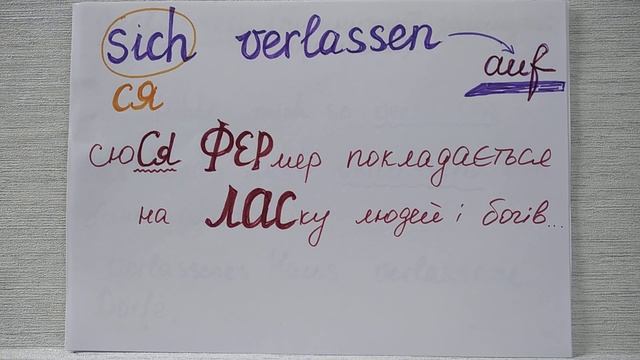 sich verlassen auf
ся
сюСя ФЕРмер покладається
на ЛАСку людей і богів...